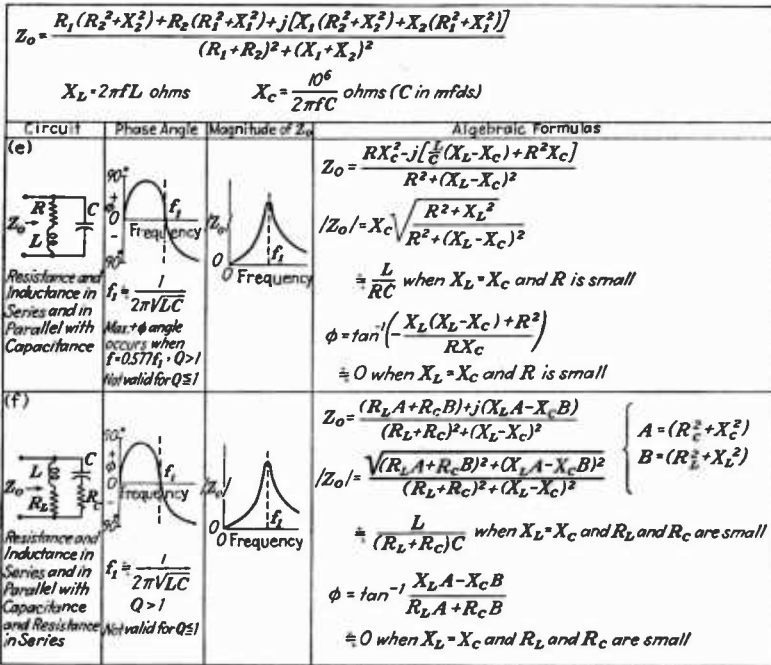 Z₀ = [R₁(R₂²+X₂²)+R₂(R₁²+X₁²)+j[X₁(R₂²+X₂²)+X₂(R₁²+X₁²)]] / [(R₁+R₂)²+(X₁+X₂)²]
X_L = 2πfL ohms X_C = 10⁶/(2πfC) ohms (C in mfds)
Circuit Phase Angle Magnitude of Z₀ Algebraic Formulas
(e)
R
C
Z₀
L
Resistance and
Inductance in
Series and in
Parallel with
Capacitance
90°
+
ϕ
0
−
90°
f₁
Frequency
f₁ ≐ 1/(2π√LC)
Max.+ϕ angle
occurs when
f=0.577f₁, Q>1
Not valid for Q≦1
/Z₀/
0
f₁
0 Frequency
Z₀ = [RX_C²−j[L/C(X_L−X_C)+R²X_C]] / [R²+(X_L−X_C)²]
/Z₀/ = X_C √[(R²+X_L²)/(R²+(X_L−X_C)²)]
≐ L/RC when X_L=X_C and R is small
ϕ = tan⁻¹(−[X_L(X_L−X_C)+R²]/RX_C)
≐ 0 when X_L=X_C and R is small
(f)
L
C
Z₀
R_L
R_C
Resistance and
Inductance in
Series and in
Parallel with
Capacitance
and Resistance
in Series
90°
+
ϕ
0
−
90°
f₁
Frequency
f₁ ≐ 1/(2π√LC)
Q>1
Not valid for Q≦1
/Z₀/
0
f₁
0 Frequency
Z₀ = [(R_L A+R_C B)+j(X_L A−X_C B)] / [(R_L+R_C)²+(X_L−X_C)²]
A=(R_C²+X_C²)
B=(R_L²+X_L²)
/Z₀/ = √[(R_L A+R_C B)²+(X_L A−X_C B)²] / [(R_L+R_C)²+(X_L−X_C)²]
≐ L/((R_L+R_C)C) when X_L=X_C and R_L and R_C are small
ϕ = tan⁻¹ (X_L A−X_C B)/(R_L A+R_C B)
≐ 0 when X_L=X_C and R_L and R_C are small